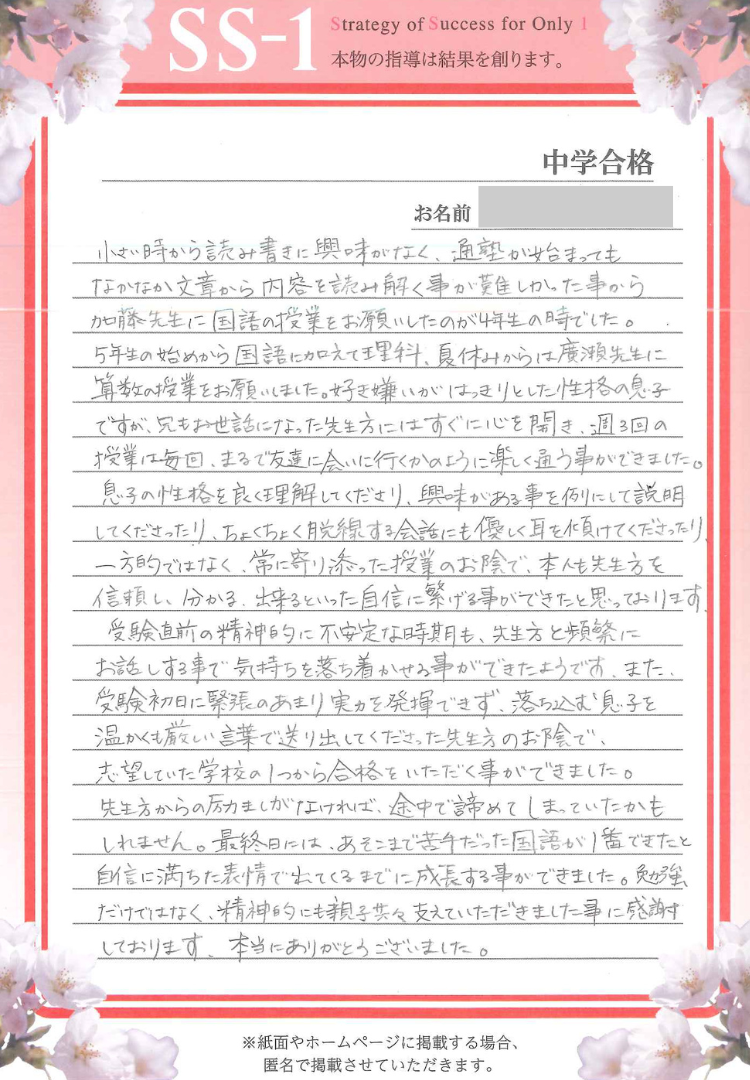 SS-1
Strategy of Success for Only 1
本物の指導は結果を創ります。
中学合格
お名前
小さい時から読み書きに興味がなく、通塾が始まっても
なかなか文章から内容を読み解く事が難しかった事から
加藤先生に国語の授業をお願いしたのが4年生の時でした。
5年生の始めから国語に加えて理科、夏休みからは廣瀬先生に
算数の授業をお願いしました。好き嫌いがはっきりとした性格の息子
ですが、兄もお世話になった先生方にはすぐに心を開き、週3回の
授業は毎回、まるで友達に会いに行くかのように楽しく通う事ができました。
息子の性格を良く理解してくださり、興味がある事を例にして説明
してくださったり、ちょくちょく脱線する会話にも優しく耳を傾けてくださったり、
一方的ではなく、常に寄り添った授業のお陰で、本人も先生方を
信頼し、分かる、出来るといった自信に繋げる事ができたと思っております。
受験直前の精神的に不安定な時期も、先生方と頻繁に
お話しする事で気持ちを落ち着かせる事ができたようです。また、
受験初日に緊張のあまり実力を発揮できず、落ち込む息子を
温かくも厳しい言葉で送り出してくださった先生方のお陰で、
志望していた学校の1つから合格をいただく事ができました。
先生方からの励ましがなければ、途中で諦めてしまっていたかも
しれません。最終日には、あそこまで苦手だった国語が1番できたと
自信に満ちた表情で出てくるまでに成長する事ができました。勉強
だけではなく、精神的にも親子共々支えていただきました事に感謝
しております。本当にありがとうございました。
※紙面やホームページに掲載する場合、
匿名で掲載させていただきます。